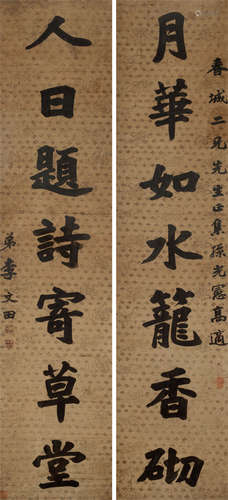 月華如水籠香砌
春城二兄先生正集孫光憲高適
人日題詩寄草堂
弟李文田